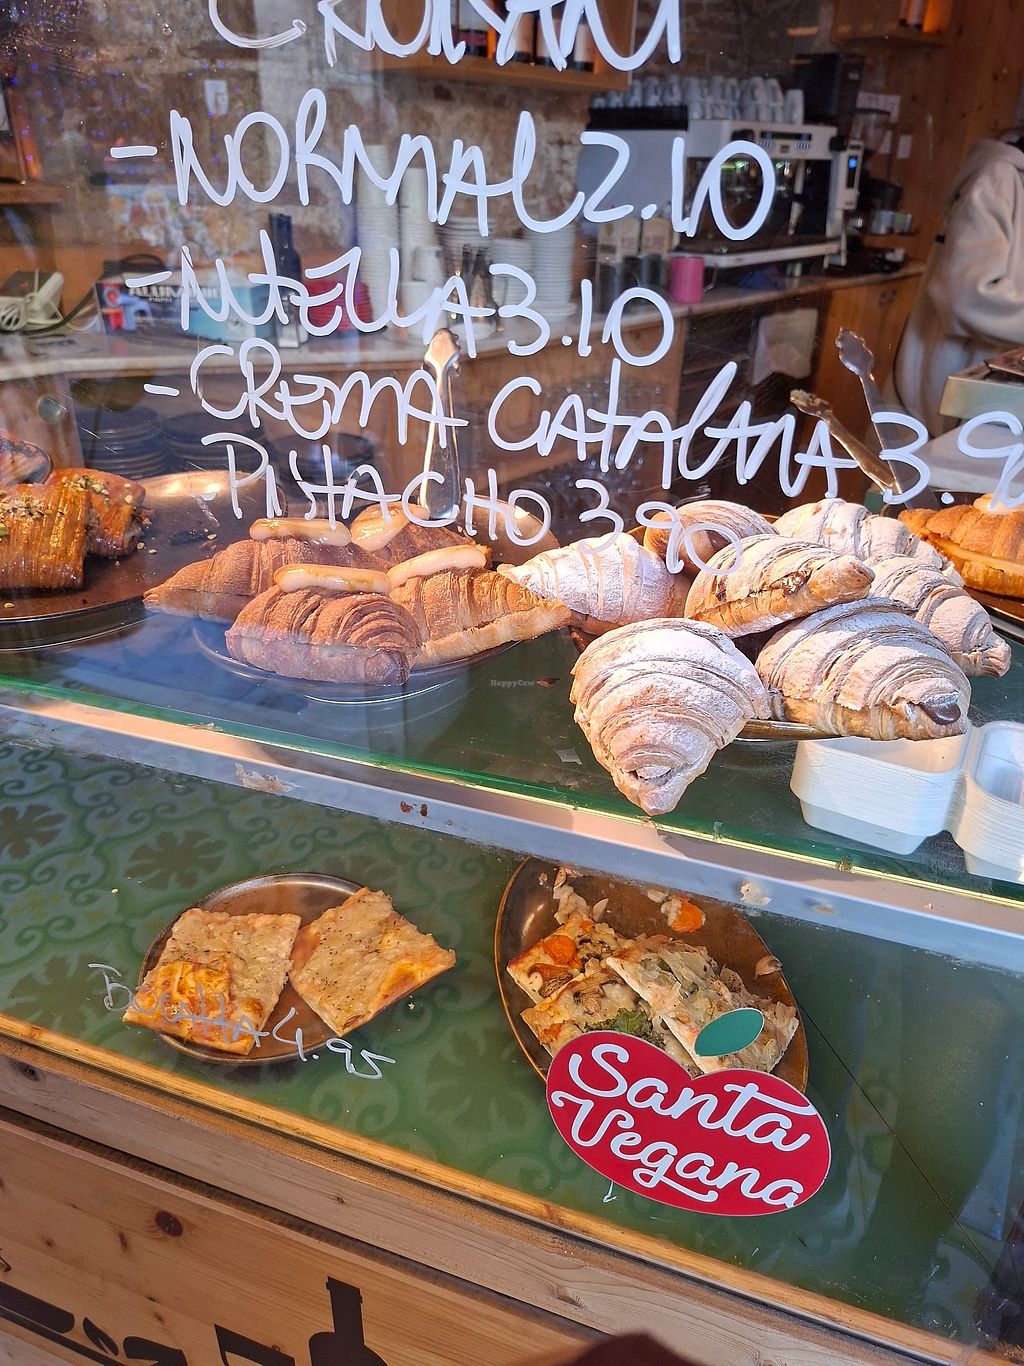 CROISSANT
- NORMAL 2.10
- NUTELLA 3.10
- CREMA CATALANA 3.90
PISTACHO 3.90
HappyCow
4.95
Santa
Vegana